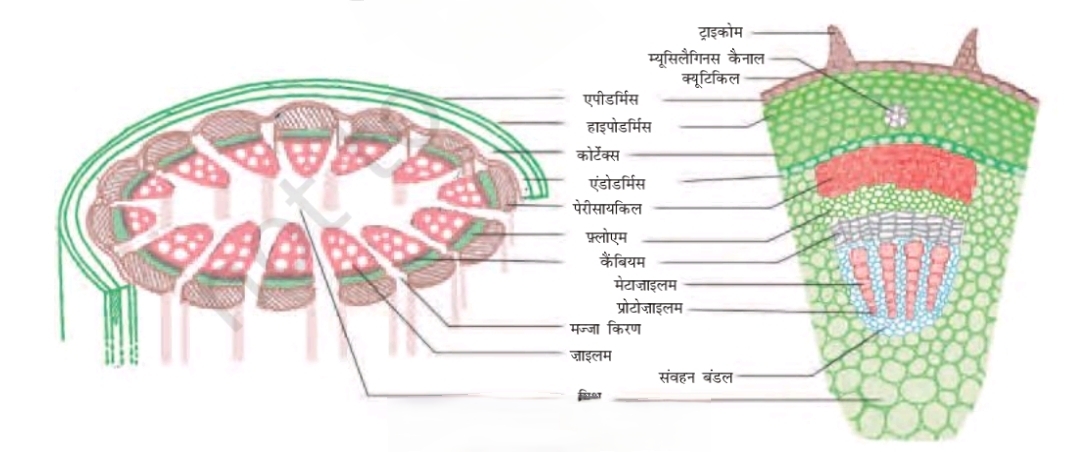 ट्राइकोम
म्यूसिलैगिनस कैनाल
क्यूटिकिल
एपीडर्मिस
हाइपोडर्मिस
कोर्टेक्स
एंडोडर्मिस
पेरीसायकिल
फ़्लोएम
कैंबियम
मेटाज़ाइलम
प्रोटोज़ाइलम
मज्जा किरण
ज़ाइलम
संवहन बंडल